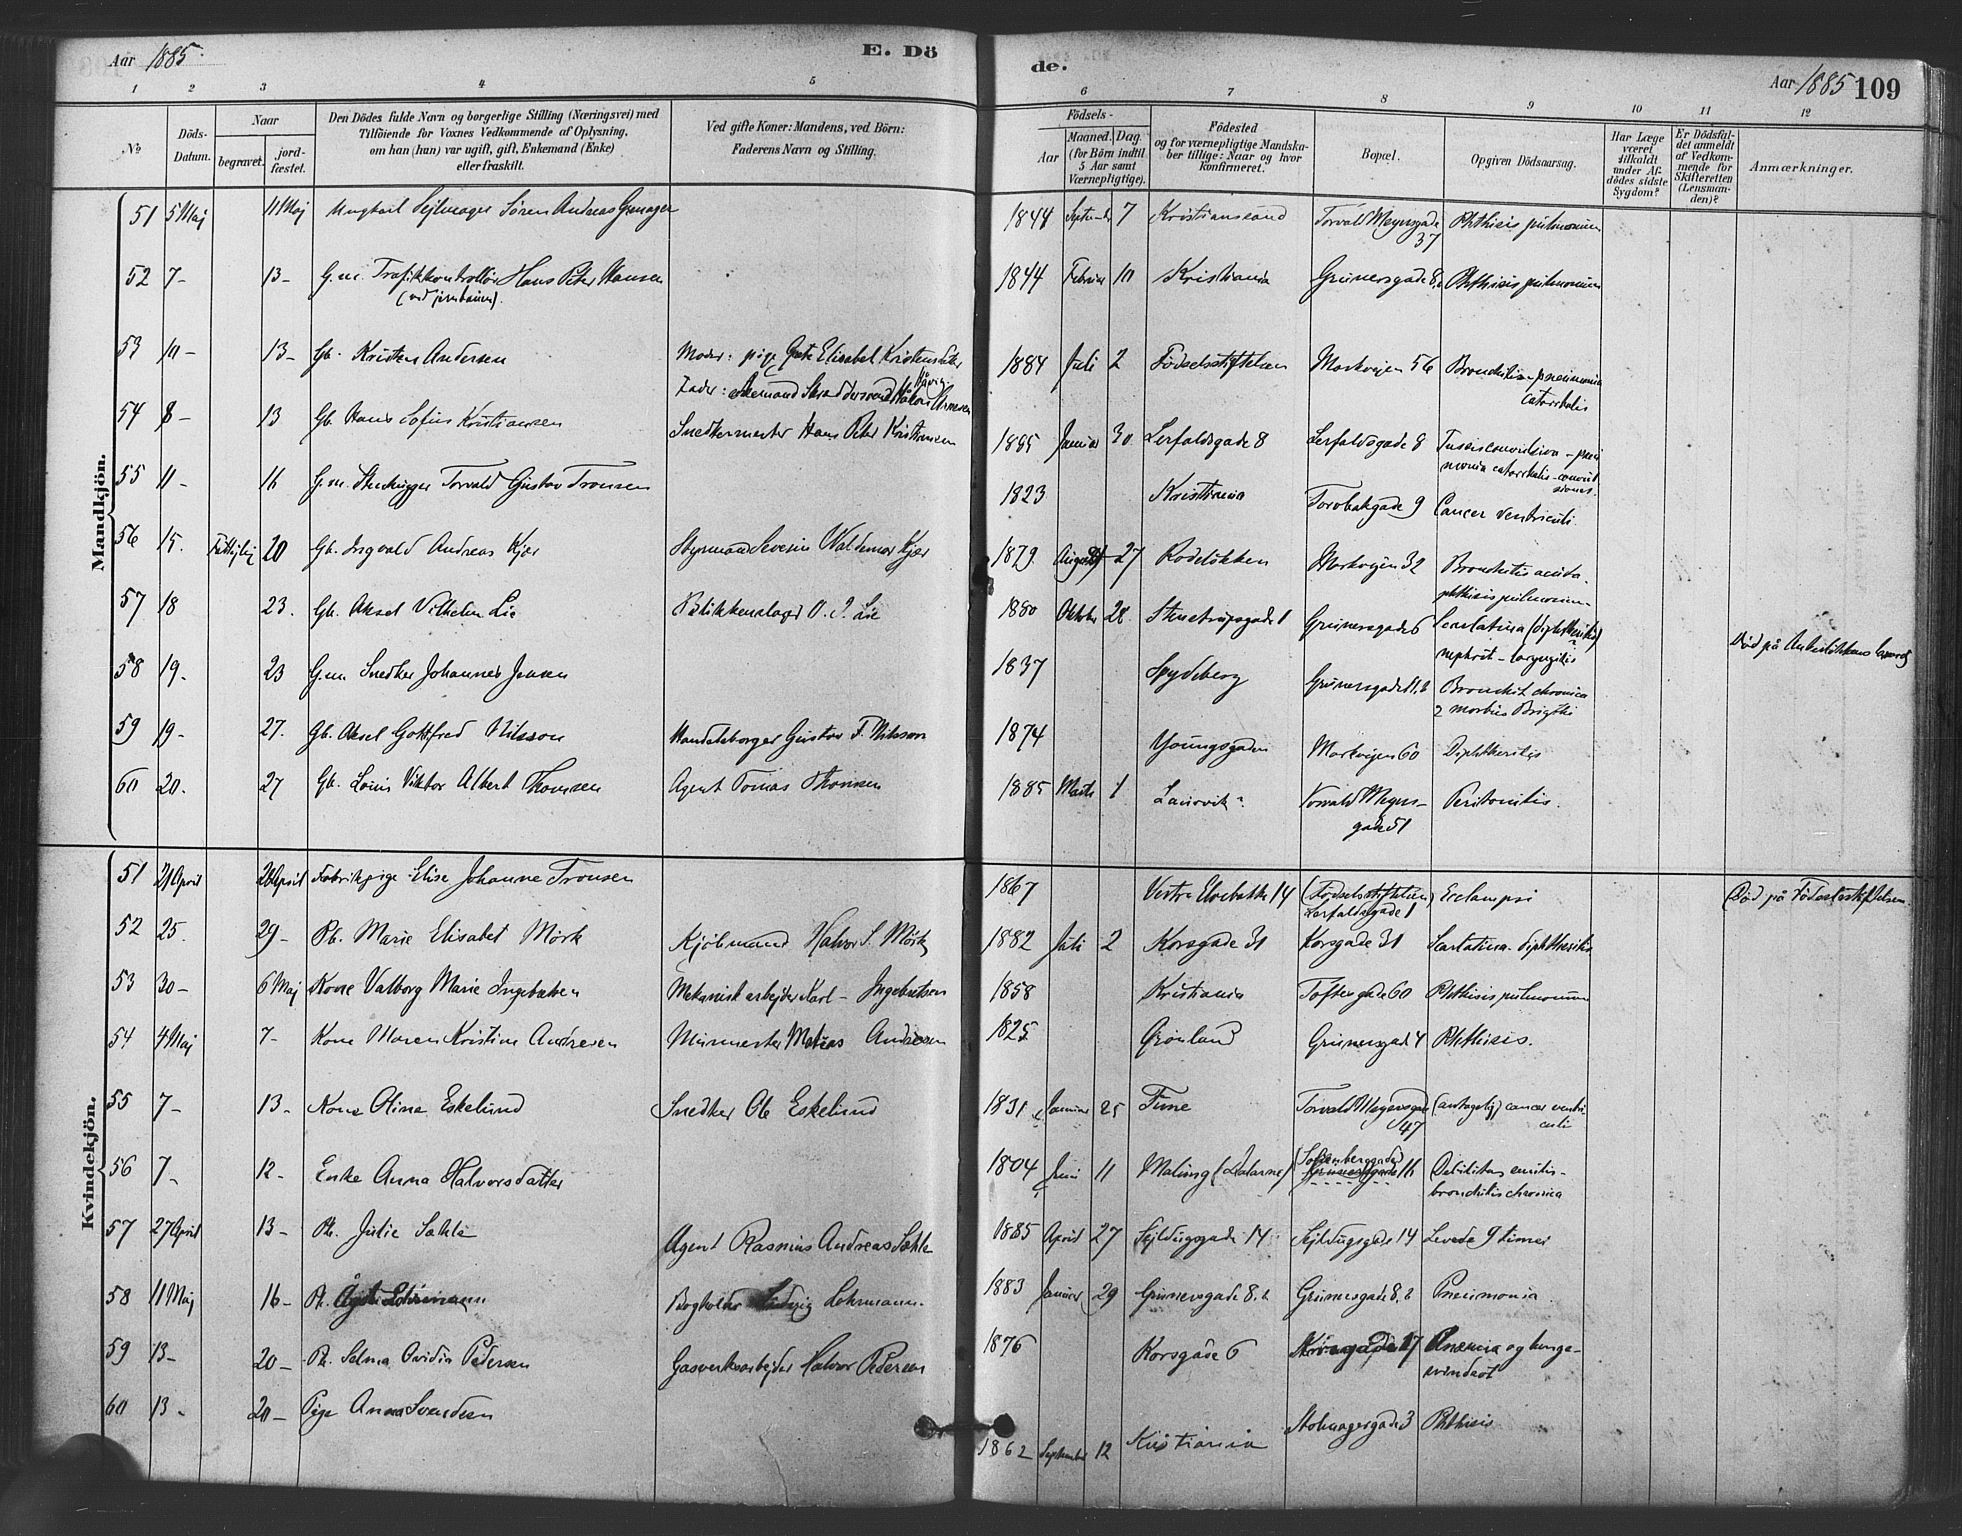 Aar 1885.
E. Dö
de.
Aar 1885 109
1 2 3 4 5 6 7 8 9 10 11 12
No
Döds-Datum.
Naar
begravet.
jord-fæstet.
Den Dödes fulde Navn og borgerlige Stilling (Næringsvei) med
Tilföiende for Voxnes Vedkommende af Oplysning,
om han (hun) var ugift, gift, Enkemand (Enke)
eller fraskilt.
Ved gifte Koner: Mandens, ved Börn:
Faderens Navn og Stilling.
Födsels-
Aar
Maaned. Dag.
(for Börn indtil
5 Aar samt
Værnepligtige).
Födested
og for værnepligtige Mandska-
ber tillige: Naar og hvor
konfirmeret.
Bopæl.
Opgiven Dödsaarsag.
Har Læge
været
tilkaldt
under Af-
dödes sidste
Sygdom?
Er Dödsfal-
det anmeldt
af Vedkom-
mende for
Skifteretten
(Lensman-
den)?
Anmærkninger.
Mandkjön.
51 5 Maj 11 Maj Ungkarl Sejlmager Sören Andreas 1844 7 Kristianssand Torvald Meyersgade 37 Phthisis pulmonum
52 7- 13- G.m. Trafikkontrollör Hans Peter Hansen 1844 Februar 10 Kristiania Grünersgade 8,2 Phthisis pulmonum
53 10- 13- Gb. Kristen Andersen Moder: pige Elisabet Kristensdatter
Fader: 1884 Juli 2 Födselsstiftelsen Markvejen 56 Bronchitis pneumonia catarrhalis
54 8- 13 Gb. Hans Sofus Kristiansen Snedkermester Hans Peter Kristiansen 1885 Januar 30 Lerfaldsgade 8 Lerfaldsgade 8 Tussis convulsiva - pneu
monia catarrhalis - convul
siones.
55 11- 16 G.m. Stenhugger Torvald Gustav Tronsen 1823 Kristiania 9 Cancer ventriculi.
56 15. 20 Gb. Ingvald Andreas Kjær Styrmand Severin Waldemar Kjær 1879. August 27 Rodelökken Markvejen 32 Bronchitis acuta.
phthisis pulmonum.
57 18 23. Gb. Aksel Vilhelm Lie Blikkenslager O. J. Lie 1880 Oktober 28 Stenstrupsgade 1 Grünersgade 6 Scarlatina (diphtheritis)
nephrit - laryngitis
58 19. 23 G.m. Snedker Johannes Jensen 1837 Spydeberg Grünersgade 11,2 Bronchit. chronica
morbus Brigthi Död på
59 19- 27. Gb. Aksel Gottfred Nilsson Handelsborger Gustav F. Nilsson 1874 Youngsgaden Markvejen 60 Diphtheritis
60 20. 27 Gb. Louis Viktor Albert Thomsen Agent Tomas Thomsen 1885 Marts 1 Laurvik Torvald Meyers-
gade 51 Peritonitis.
Kvindekjön.
51 21 April 28 April Fabrikpige Elise Johanne Tronsen 1867 Vestre Elvebakke 14 (Födselsstiftelsen)
Lerfaldsgade 1 Eclampsi Död på Födselsstiftelsen.
52 25. 29- Pb. Marie Elisabet Mörk Kjöbmand Halvor S. Mörk 1882 Juli 2 Korsgade 31 Korsgade 31 Scarlatina - diphtheritis
53 30- 6 Maj Kone Valborg Marie Ingebretsen Mekanisk arbejder Karl Ingebretsen 1858 Kristiania Toftesgade 60 Phthisis pulmonum
54 4 Maj 7- Kone Maren Kristine Andresen Murmester Matias Andresen 1825 Grönland Grünersgade 4 Phthisis.
55 7- 13- Kone Oline Eskelund Snedker Ole Eskelund 1831 Januar 25 Tune Torvald Meyersgade
47 (antagelig) cancer ventri-
culi
56 7- 12- Enke Anna Halvorsdatter 1804 Juni 11 Malung (Dalarne) (Sofienberggade)
Grünersgade 16 Debilitas senilis-
bronchitis chronica
57 27 April 13- Pb. Julie Sæhle Agent Rasmus Andreas Sæhle 1885 April 27 Sejldugsgade 14 Sejldugsgade 14 Levede 9 timer
58 11 Maj 16- Pb. Lohrmann Bogholder Ludvig Lohrmann. 1883 Januar 29 Grünersgade 8,2 Grünersgade 8,2 Pneumonia.
59 13- 20- Pb. Selma Ovidia Pedersen Gasverksarbejder Halvor Pedersen 1876 Korsgade 6 17 Anæmia og lunge-
svindsot
60 13- 20- Pige Anna Svendsen 1862 September 12 Kristiania 3 Phthisis